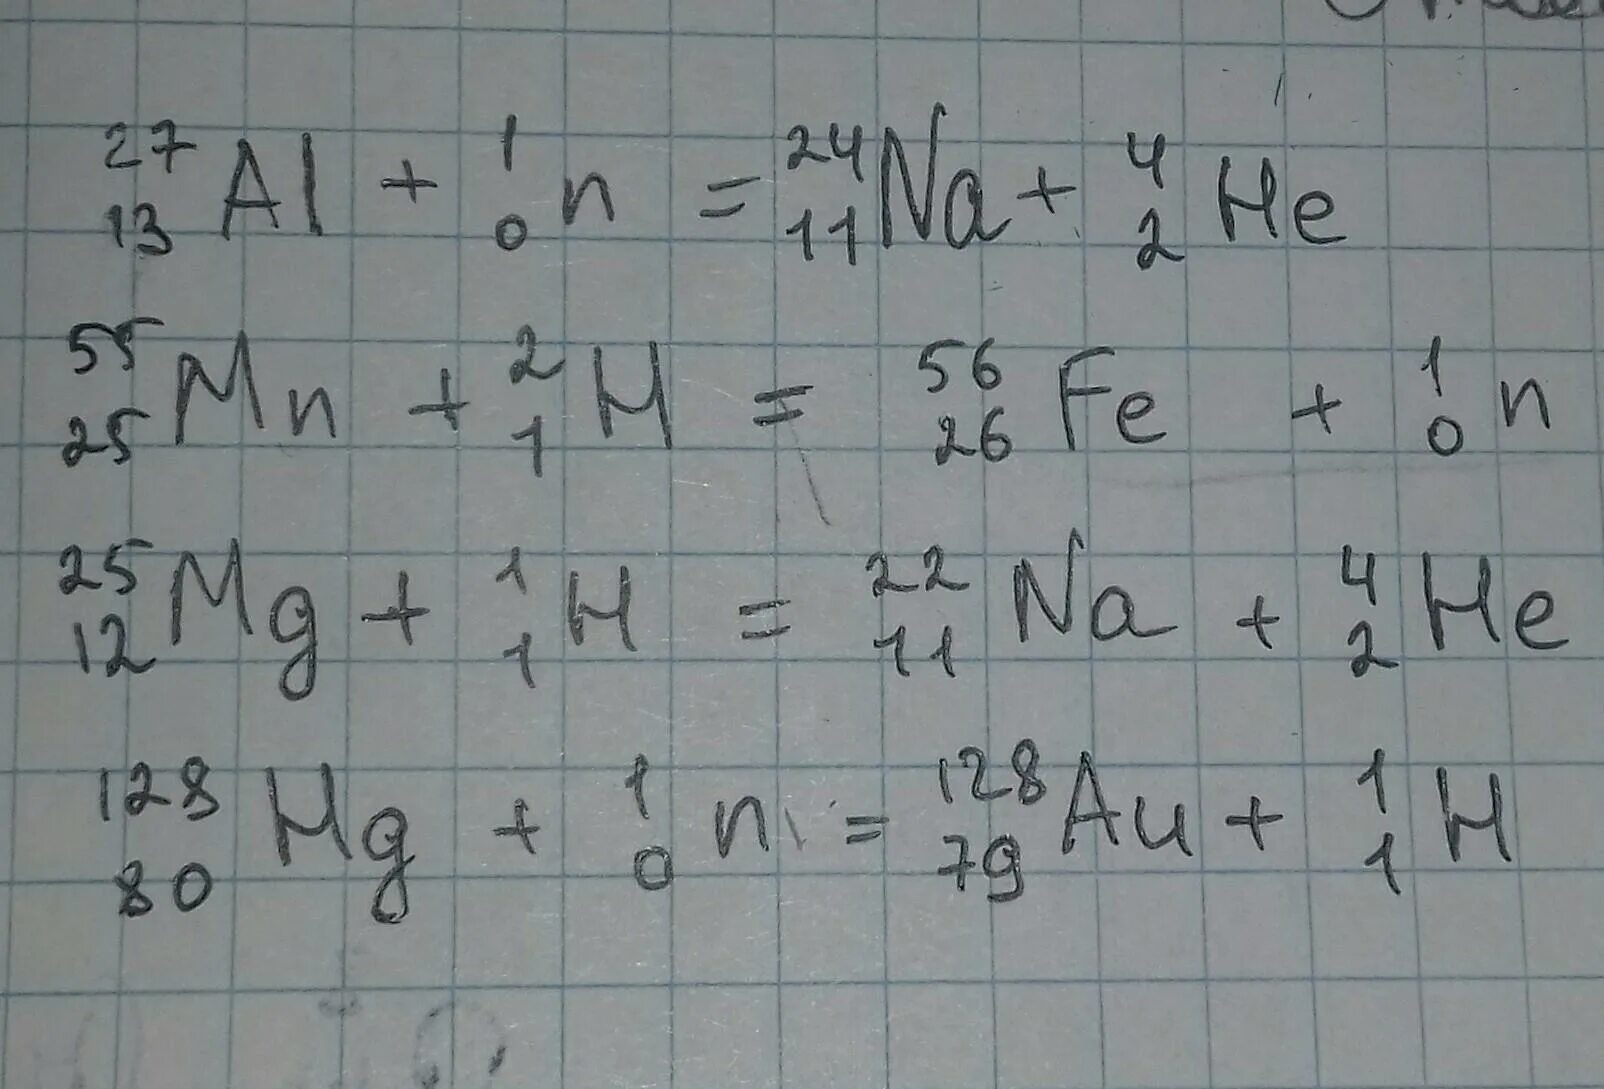 ²⁷₁₃Al + ¹₀n = ²⁴₁₁Na + ⁴₂He
⁵⁵₂₅Mn + ²₁H = ⁵⁶₂₆Fe + ¹₀n
²⁵₁₂Mg + ¹₁H = ²²₁₁Na + ⁴₂He
¹²⁸₈₀Hg + ¹₀n = ¹²⁸₇₉Au + ¹₁H